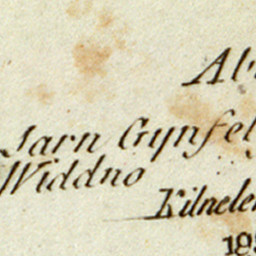 Al
Sarn Gynfel
Widdno
Kilnele
18